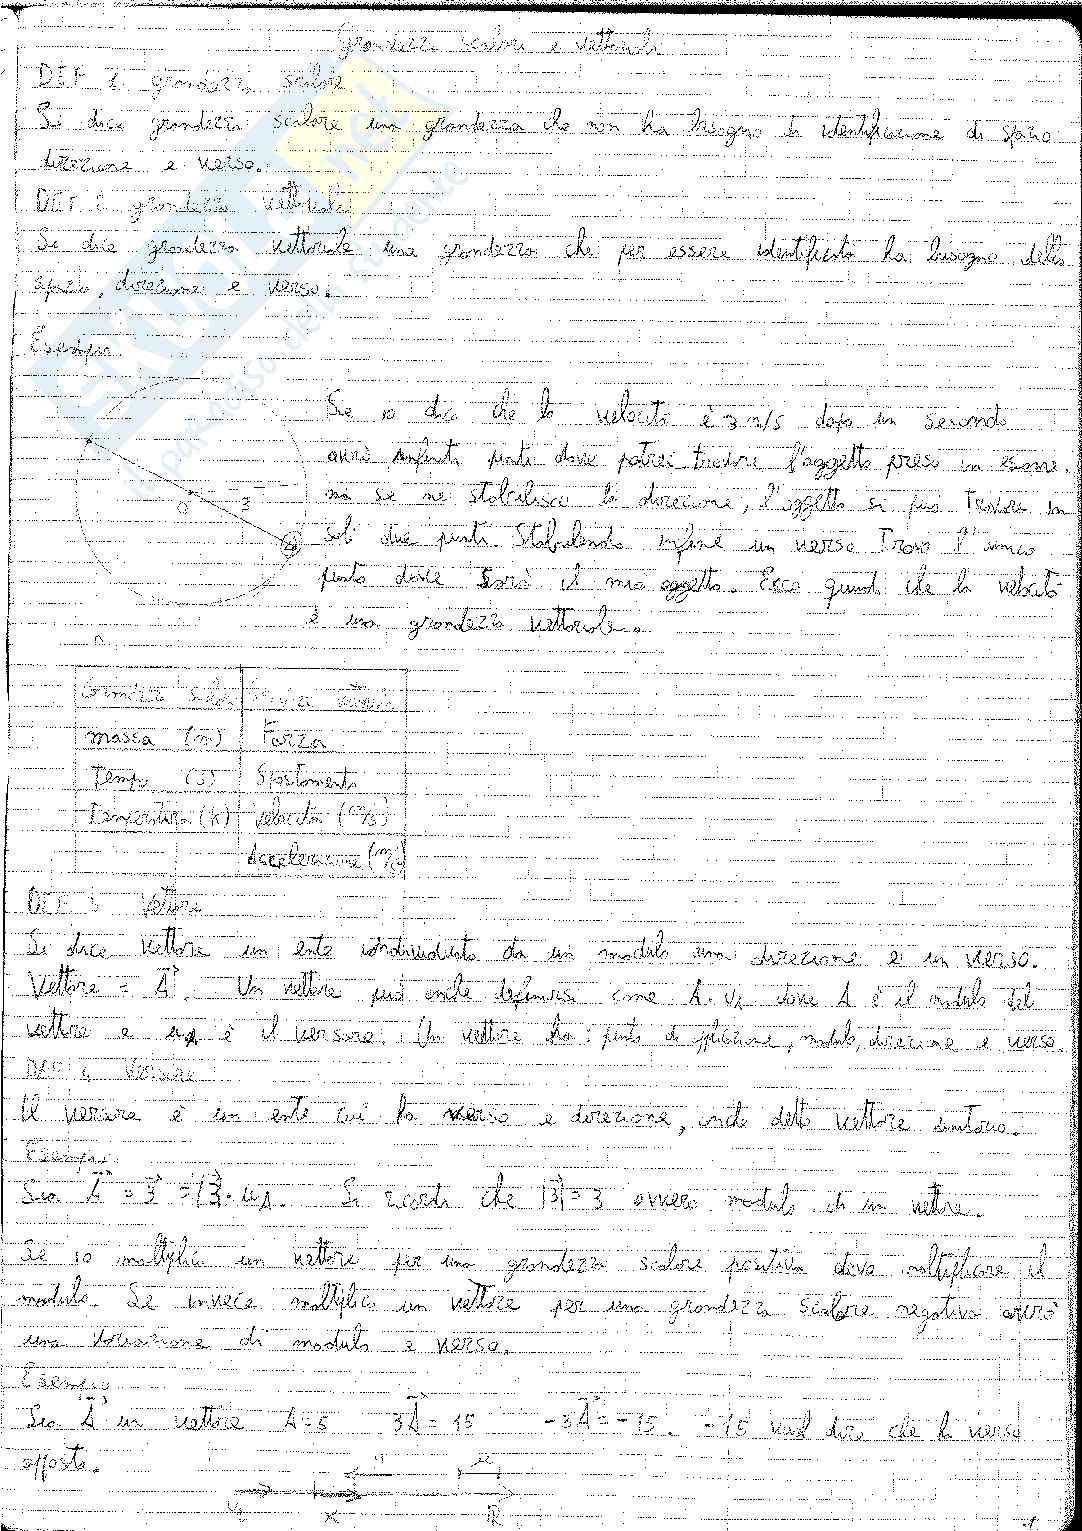 Grandezze scalari e vettoriali
DEF di grandezza scalare
Si dice grandezza scalare una grandezza che non ha bisogno di identificazione di spazio
direzione e verso.
DEF di grandezza vettoriale
Si dice grandezza vettoriale una grandezza che per essere identificata ha bisogno dello
spazio, direzione e verso.
Esempio
Se io dico che la velocità è 3 m/s dopo un secondo
avrò infiniti punti dove potrei trovare l'oggetto preso in esame.
ma se ne stabilisco la direzione, l'oggetto si può trovare in
soli due punti. Stabilendo infine un verso trovo l'unico
punto dove sarà il mio oggetto. Ecco quindi che la velocità
è una grandezza vettoriale.
0 3
Grandezze scalari Grandezze vettoriali
massa (m) Forza
Tempo (s) Spostamento
Temperatura (K) Velocità (m/s)
Accelerazione
DEF di Vettore
Si dice vettore un ente individuato da un modulo una direzione e un verso.
Vettore = A⃗. Un vettore può anche definirsi come A · u_A dove A è il modulo del
vettore e u_A è il versore. Un vettore ha: punto di applicazione, modulo, direzione e verso.
DEF di Versore
Il versore è un ente cui ha verso e direzione, anche detto vettore unitario.
Esempio
Sia A⃗ = 3⃗ = |3⃗| · u_A. Si ricordi che |3⃗| = 3 ovvero modulo di un vettore.
Se io moltiplico un vettore per una grandezza scalare positiva devo moltiplicare il
modulo. Se invece moltiplico un vettore per una grandezza scalare negativa avrò
una variazione di modulo e verso.
Esempio
Sia A⃗ un vettore A=5 3A⃗ = 15 -3A⃗ = -15. -15 vuol dire che ha verso
opposto.
x R